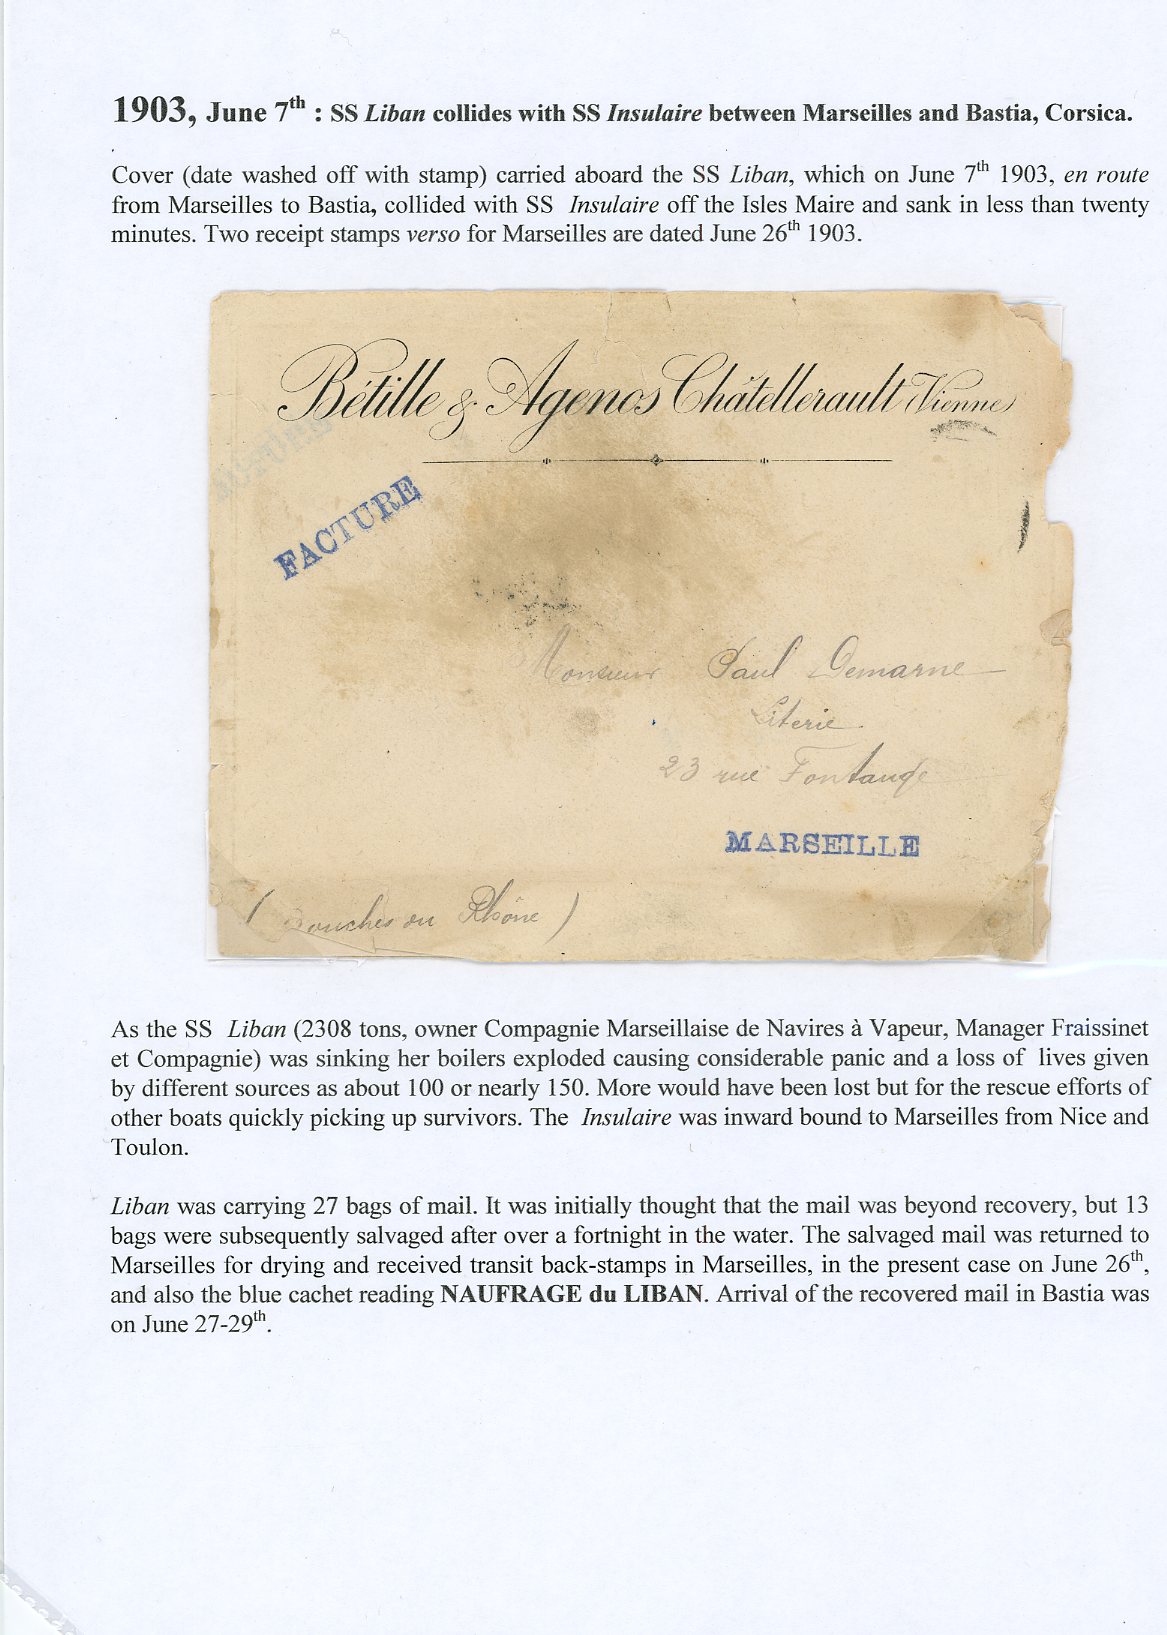 1903, June 7th : SS Liban collides with SS Insulaire between Marseilles and Bastia, Corsica.
Cover (date washed off with stamp) carried aboard the SS Liban, which on June 7th 1903, en route
from Marseilles to Bastia, collided with SS Insulaire off the Isles Maire and sank in less than twenty
minutes. Two receipt stamps verso for Marseilles are dated June 26th 1903.
Bétille & Agenos Châtellerault (Vienne)
FACTURE
Monsieur Paul Demarne
Literie
23 rue Fontange
MARSEILLE
(Bouches du Rhône)
As the SS Liban (2308 tons, owner Compagnie Marseillaise de Navires à Vapeur, Manager Fraissinet
et Compagnie) was sinking her boilers exploded causing considerable panic and a loss of lives given
by different sources as about 100 or nearly 150. More would have been lost but for the rescue efforts of
other boats quickly picking up survivors. The Insulaire was inward bound to Marseilles from Nice and
Toulon.
Liban was carrying 27 bags of mail. It was initially thought that the mail was beyond recovery, but 13
bags were subsequently salvaged after over a fortnight in the water. The salvaged mail was returned to
Marseilles for drying and received transit back-stamps in Marseilles, in the present case on June 26th,
and also the blue cachet reading NAUFRAGE du LIBAN. Arrival of the recovered mail in Bastia was
on June 27-29th.